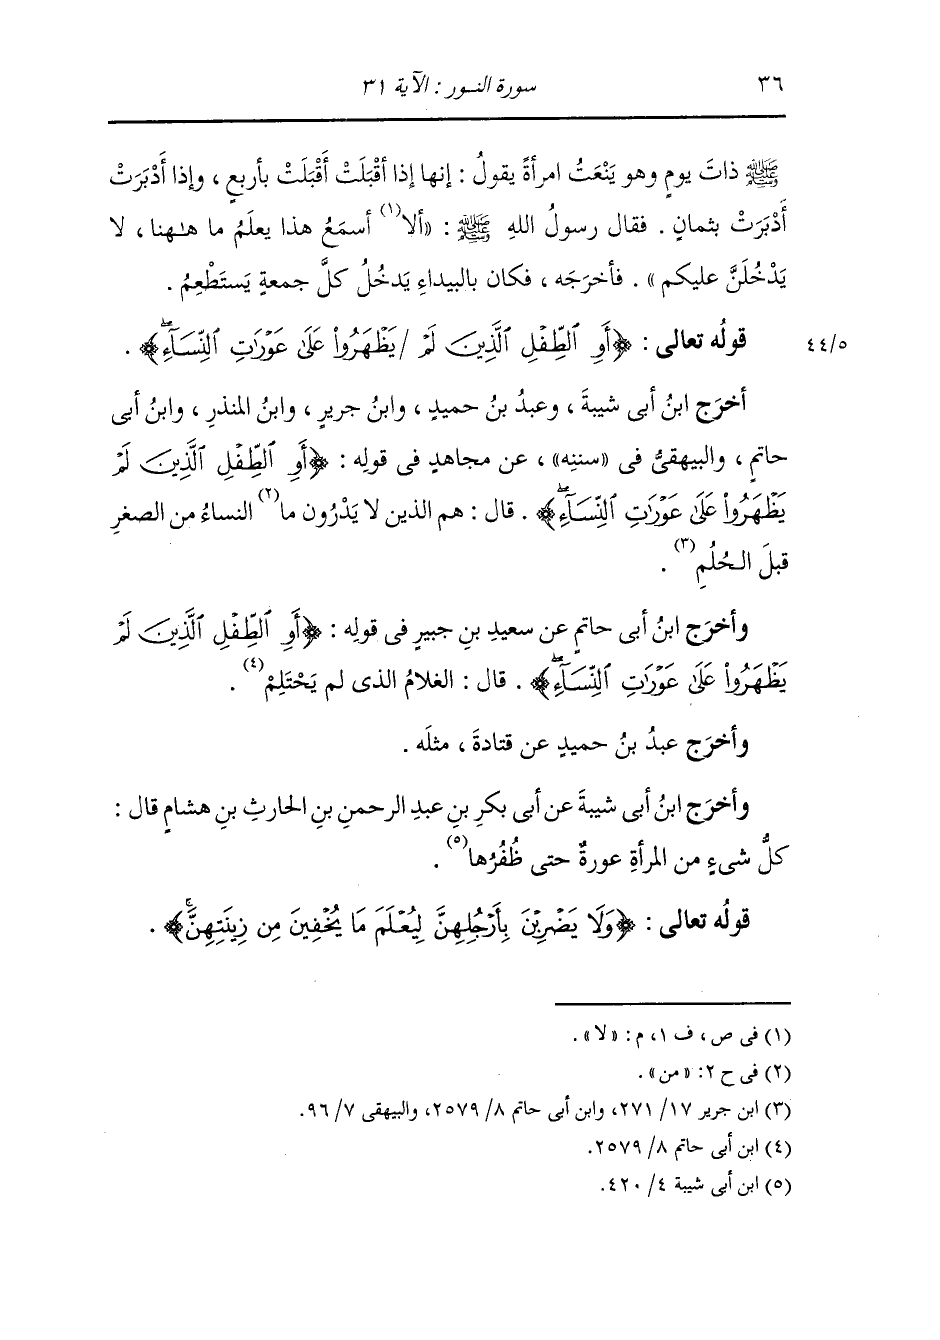 ٣٦ سورة النور : الآية ٣١
ﷺ ذاتَ يومٍ وهو يَنْعَتُ امرأةً يقولُ : إنها إذا أقْبَلَتْ أَقْبَلَتْ بأربعٍ ، وإذا أَدْبَرَتْ
أَدْبَرَتْ بثمانٍ . فقال رسولُ اللهِ ﷺ : «ألا(١) أسمَعُ هذا يعلَمُ ما هـٰهنا ، لا
يَدْخُلَنَّ عليكم » . فأخرَجَه ، فكان بالبيداءِ يَدخُلُ كلَّ جمعةٍ يَستَطْعِمُ .
قولُه تعالى : ﴿أَوِ ٱلطِّفْلِ ٱلَّذِينَ لَمْ /يَظْهَرُوا۟ عَلَىٰ عَوْرَٰتِ ٱلنِّسَآءِۖ﴾ . ٤٤/٥
أخرَج ابنُ أبى شيبةَ ، وعبدُ بنُ حميدٍ ، وابنُ جريرٍ ، وابنُ المنذرِ ، وابنُ أبى
حاتمٍ ، والبيهقىُّ فى «سننِه» ، عن مجاهدٍ فى قولِه : ﴿أَوِ ٱلطِّفْلِ ٱلَّذِينَ لَمْ
يَظْهَرُوا۟ عَلَىٰ عَوْرَٰتِ ٱلنِّسَآءِۖ﴾ . قال : هم الذين لا يَدْرُون ما(٢) النساءُ من الصغرِ
قبلَ الحُلُمِ(٣) .
وأخرَج ابنُ أبى حاتمٍ عن سعيدِ بنِ جبيرٍ فى قولِه : ﴿أَوِ ٱلطِّفْلِ ٱلَّذِينَ لَمْ
يَظْهَرُوا۟ عَلَىٰ عَوْرَٰتِ ٱلنِّسَآءِۖ﴾ . قال : الغلامُ الذى لم يَحْتَلِمْ(٤) .
وأخرَج عبدُ بنُ حميدٍ عن قتادةَ ، مثلَه .
وأخرَج ابنُ أبى شيبةَ عن أبى بكرِ بنِ عبدِ الرحمنِ بنِ الحارثِ بنِ هشامٍ قال :
كلُّ شىءٍ من المرأةِ عورةٌ حتى ظُفُرُها(٥) .
قولُه تعالى : ﴿وَلَا يَضْرِبْنَ بِأَرْجُلِهِنَّ لِيُعْلَمَ مَا يُخْفِينَ مِن زِينَتِهِنَّۚ﴾ .
(١) فى ص ، ف ١، م : «لا» .
(٢) فى ح ٢: «من» .
(٣) ابن جرير ١٧/ ٢٧١، وابن أبى حاتم ٨/ ٢٥٧٩، والبيهقى ٧/ ٩٦.
(٤) ابن أبى حاتم ٨/ ٢٥٧٩.
(٥) ابن أبى شيبة ٤/ ٤٢٠.